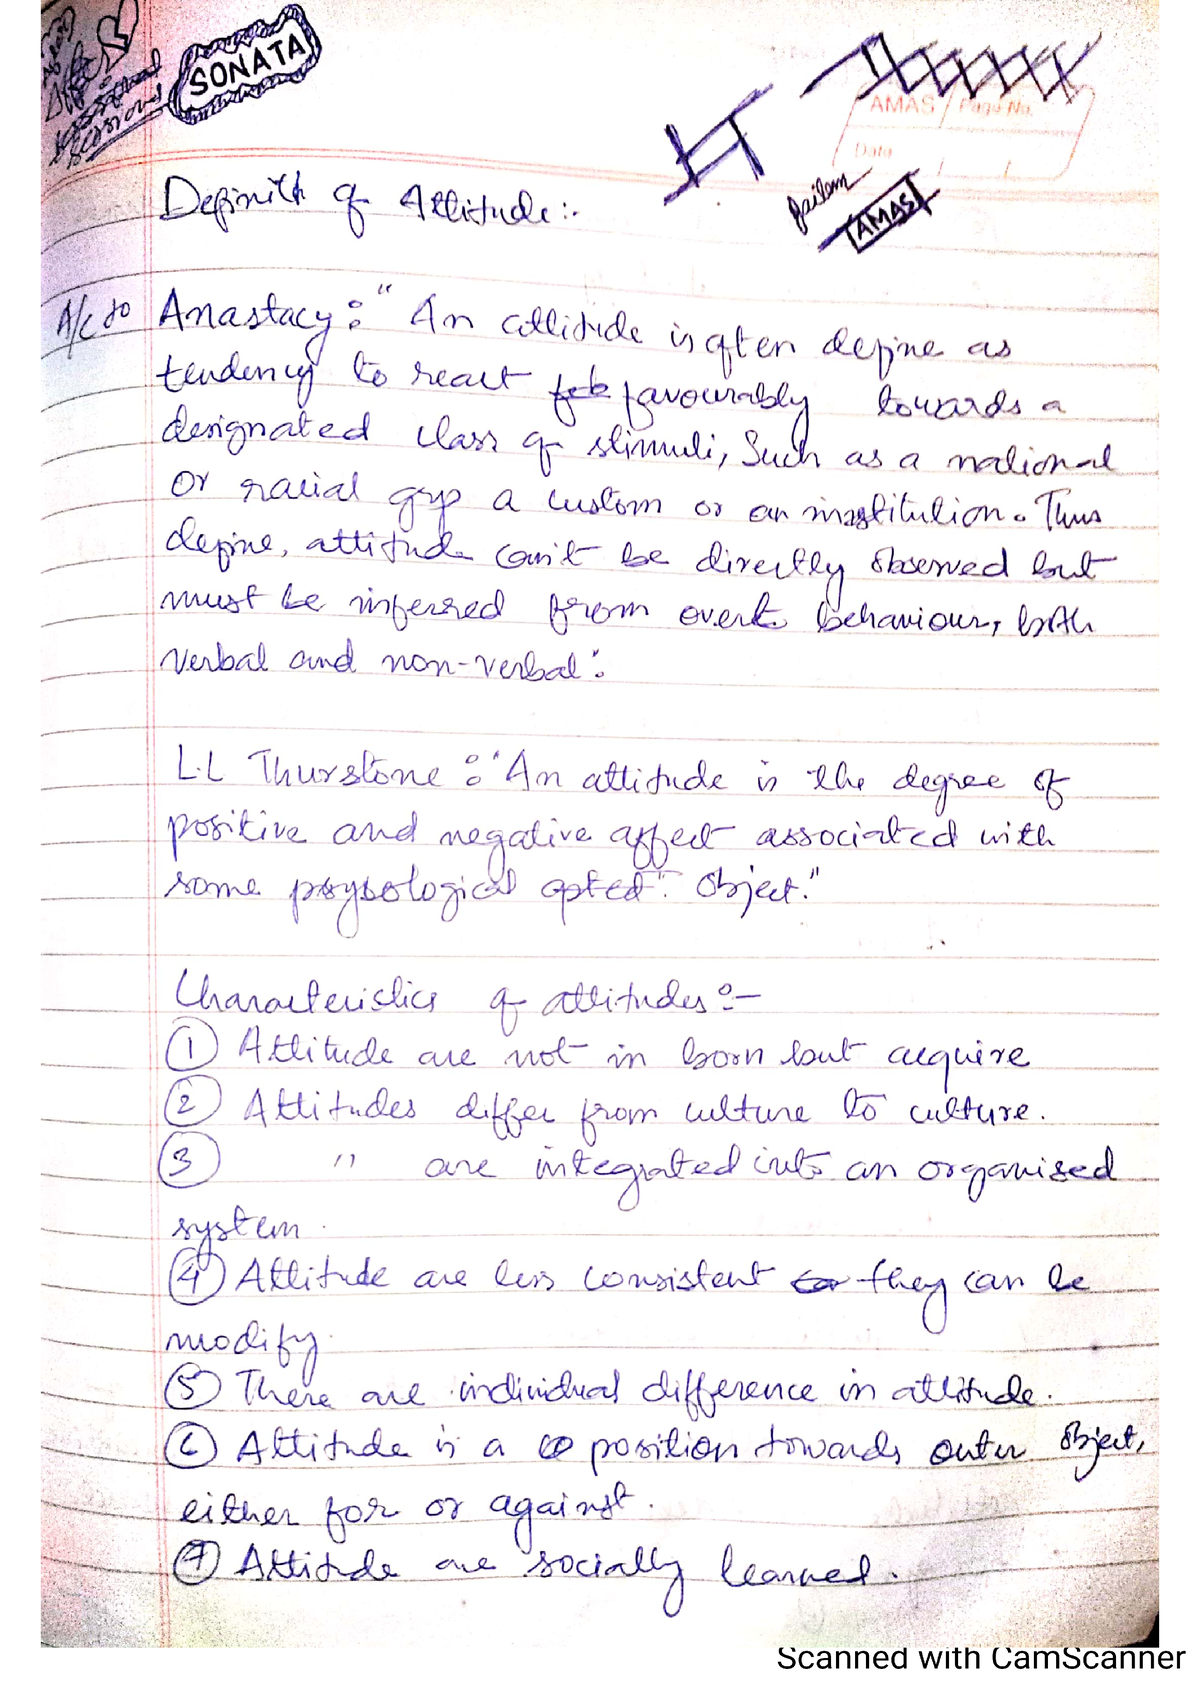 SONATA
AMAS Page No.
Date
AMAS
Definith of Attitude:-
A/c to Anastacy : "An attitude is often define as
tendency to react favourably towards a
designated class of stimuli, Such as a national
or racial grp a custom or an institution. Thus
define, attitude can't be directly observed but
must be inferred from overt behaviour, both
verbal and non-verbal".
L.L Thurstone : "An attitude is the degree of
positive and negative affect associated with
some psychological opted". Object."
Characteristics of attitudes :-
① Attitude are not in born but acquire
② Attitudes differ from culture to culture.
③ " are integrated into an organised
system.
④ Attitude are less consistent they can be
modify.
⑤ There are individual difference in attitude.
⑥ Attitude is a position towards outer object,
either for or against.
⑦ Attitude are socially learned.
Scanned with CamScanner